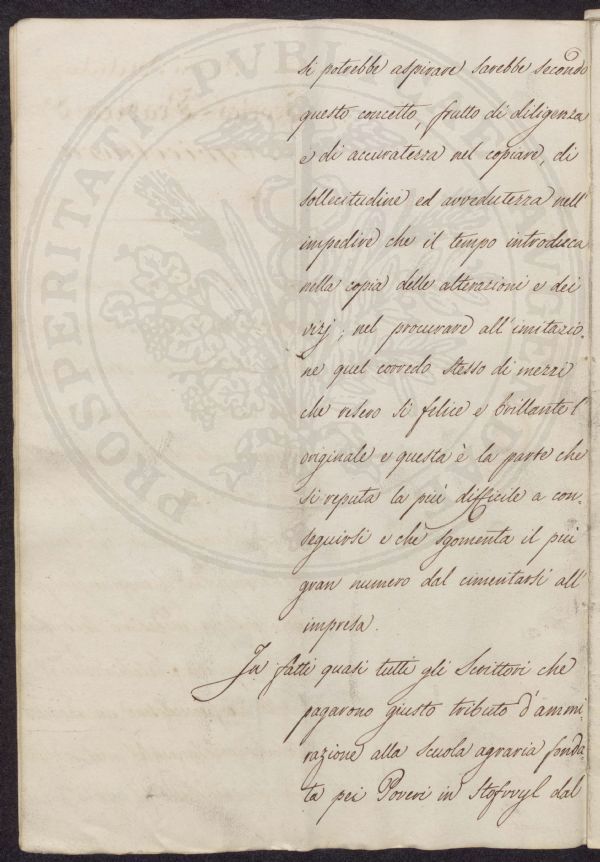 si potrebbe aspirare sarebbe secondo
questo concetto, frutto di diligenza
e di accuratezza nel copiare, di
sollecitudine ed avvedutezza nell'
impedire che il tempo introduca
nella copia delle alterazioni e dei
vizj; nel procurare all'imitazio-
ne quel corredo stesso di mezzi
che resero sì felice e brillante l'
originale e questa è la parte che
si reputa la più difficile a con-
seguirsi e che sgomenta il più
gran numero dal cimentarsi all'
impresa.
In fatti quasi tutti gli Scrittori che
pagarono giusto tributo d'ammi-
razione alla Scuola agraria fonda-
ta pei Poveri in Hofwyl dal
PROSPERITATI PVBLICAE